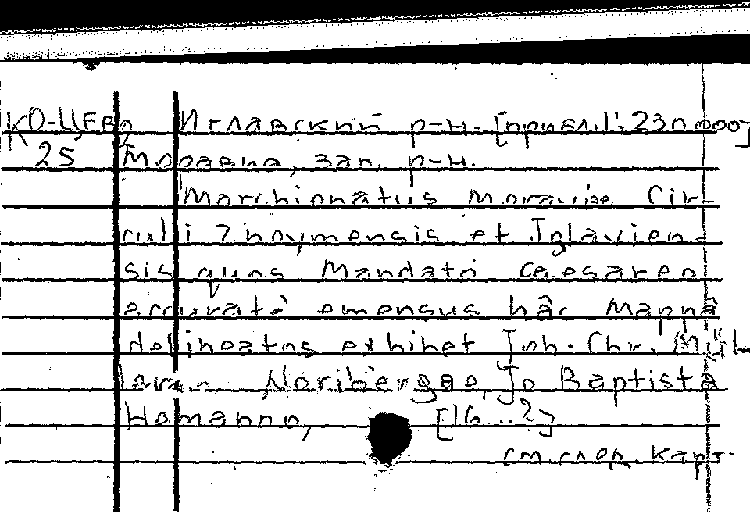 КО-ЦЕвр Иглавский р-н. [прибл. 1:230.000]
25 Моравиа, зап. р-н.
Marchionatus Moraviae Cir-
culi Znoymensis et Iglavien-
sis quos Mandato Caesareo
accuratè emensus hâc Mappâ
delineatos exhibet Joh. Chr. Mül-
Noribergae, Jo Baptista
Homanno, [16..?]
см. след. карт.